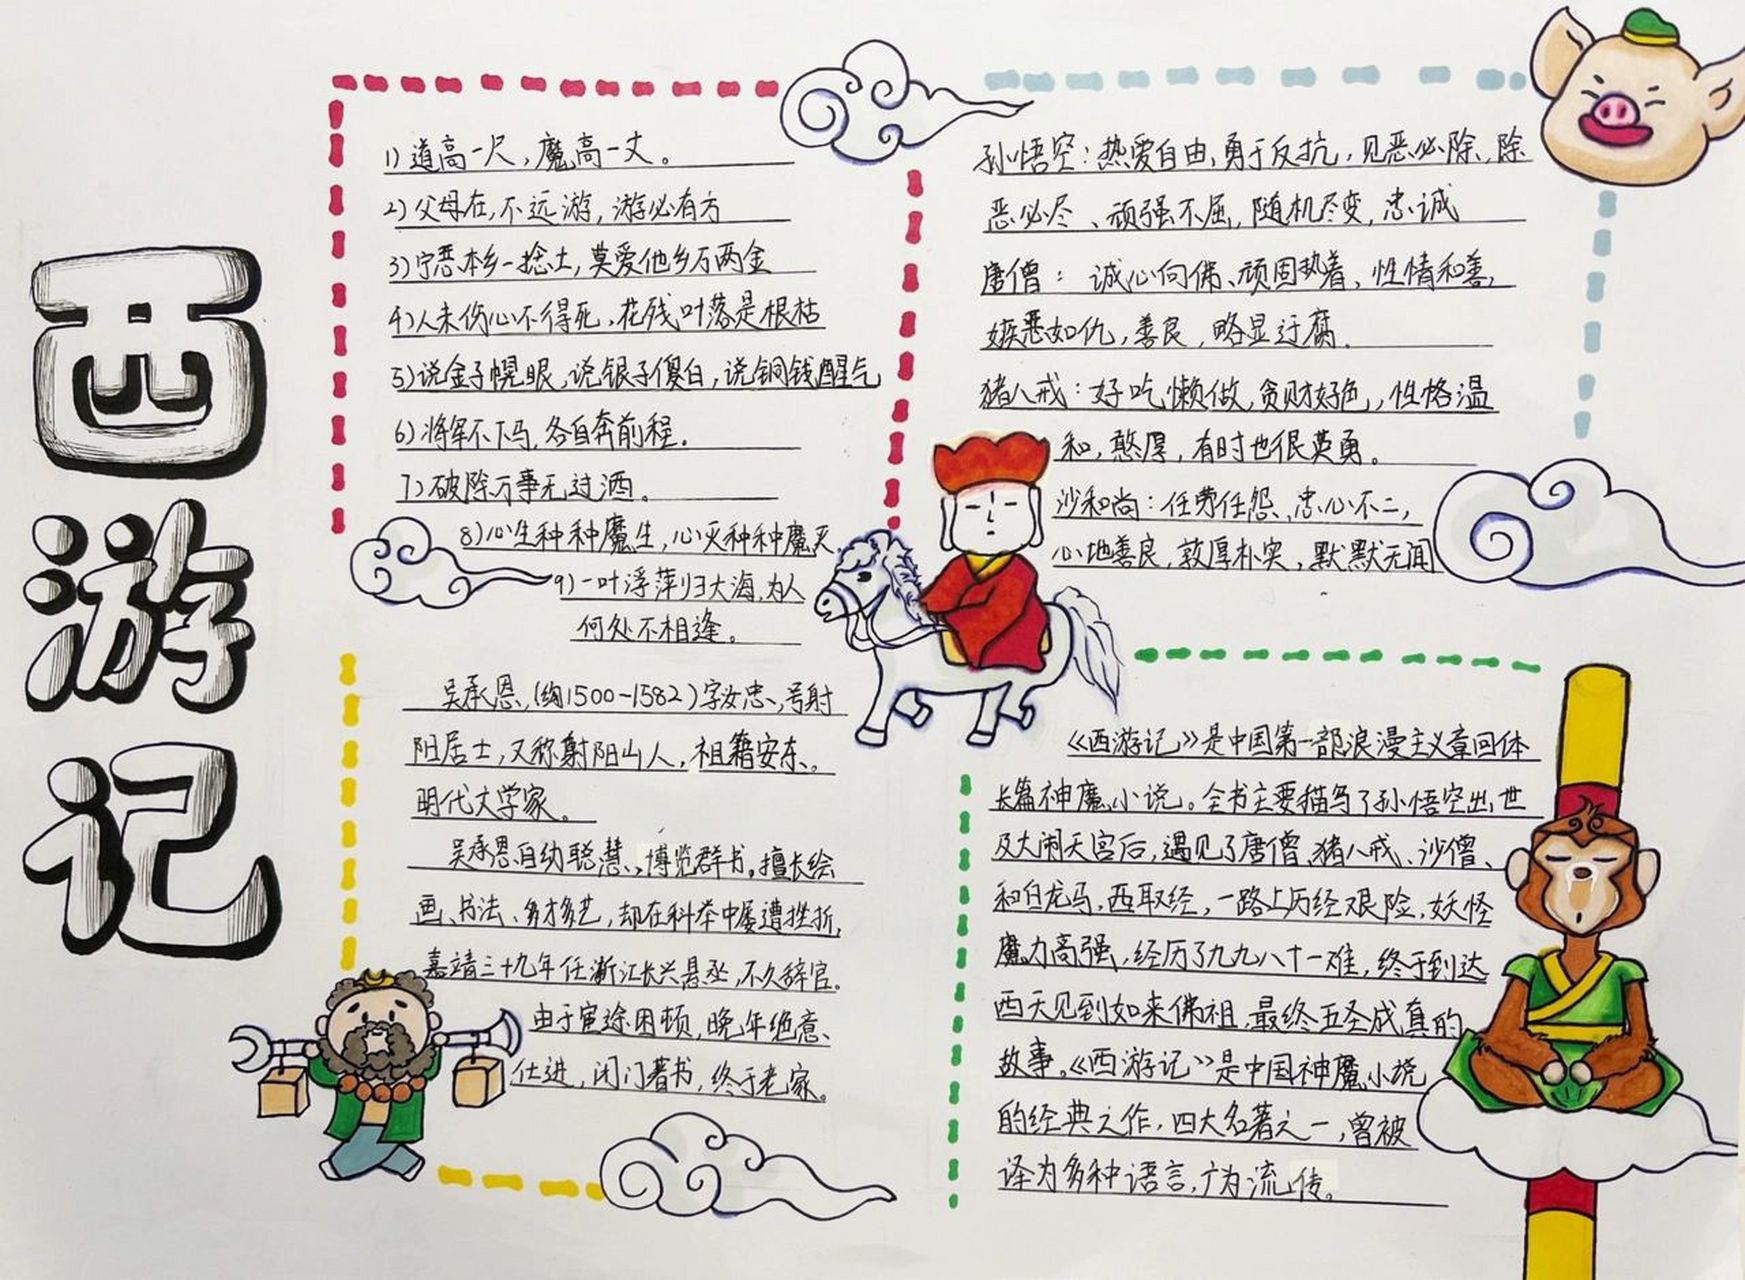 西游记
1)道高一尺,魔高一丈。
2)父母在,不远游,游必有方
3)宁恋本乡一捻土,莫爱他乡万两金
4)人未伤心不得死,花残叶落是根枯
5)说金子幌眼,说银子傻白,说铜钱腥气
6)将军不下马,各自奔前程.
7)破除万事无过酒。
8)心生种种魔生,心灭种种魔灭
9)一叶浮萍归大海,为人
何处不相逢。
孙悟空:热爱自由,勇于反抗,见恶必除,除
恶必尽、顽强不屈,随机尽变,忠诚
唐僧:诚心向佛、顽固执着、性情和善,
嫉恶如仇,善良,略显迂腐.
猪八戒:好吃懒做,贪财好色,性格温
和,憨厚,有时也很英勇。
沙和尚:任劳任怨、忠心不二,
心地善良,敦厚朴实,默默无闻
吴承恩,(约1500-1582)字汝忠、号射
阳居士,又称射阳山人,祖籍安东。
明代文学家。
吴承恩自幼聪慧、博览群书,擅长绘
画、书法、多才多艺,却在科举中屡遭挫折,
嘉靖三十九年任浙江长兴县丞,不久辞官.
由于宦途困顿,晚年绝意、
仕进,闭门著书,终于老家。
《西游记》是中国第一部浪漫主义章回体
长篇神魔小说。全书主要描写了孙悟空出世
及大闹天宫后,遇见了唐僧、猪八戒、沙僧、
和白龙马,西取经,一路上历经艰险,妖怪
魔力高强,经历了九九八十一难,终于到达
西天见到如来佛祖,最终五圣成真的
故事。《西游记》是中国神魔小说
的经典之作,四大名著之一,曾被
译为多种语言,广为流传。